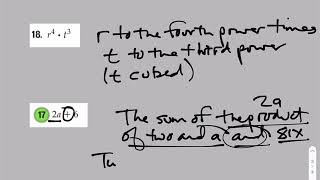 18. r⁴ • t³
r to the fourth power times
t to the third power
(t cubed)
17 2a + 6
2a
The sum of the product
of two and a and six